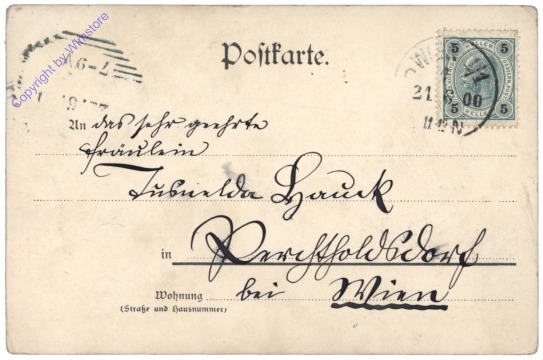 Copyright by Winstore
Postkarte.
5 5
WIEN
21. 00
5 5
An das sehr geehrte
Fräulein
Tusnelda Hauck
in Perchtholdsdorf
Wohnung bei Wien
(Straße und Hausnummer)